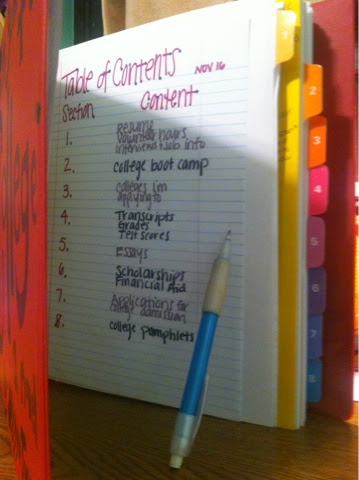 Table of Contents
NOV 16
Section Content
1. Resume
Volunteer hours
interview + job info
2. college boot camp
3. colleges i'm
applying to
4. Transcripts
Grades
Test scores
5. Essays
6. Scholarships
Financial Aid
7. Applications for
college admission
8. college pamphlets
1
2
3
4
5
6
7
8